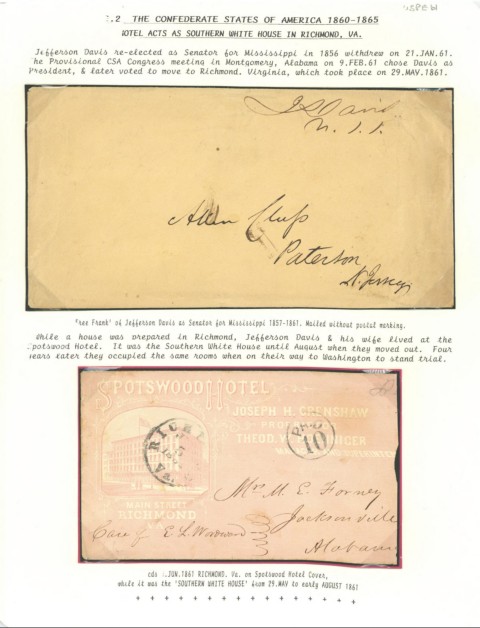 USPEW
.2 THE CONFEDERATE STATES OF AMERICA 1860-1865
HOTEL ACTS AS SOUTHERN WHITE HOUSE IN RICHMOND, VA.
Jefferson Davis re-elected as Senator for Mississippi in 1856 withdrew on 21.JAN.61.
he Provisional CSA Congress meeting in Montgomery, Alabama on 9.FEB.61 chose Davis as
President, & later voted to move to Richmond. Virginia, which took place on 29.MAY.1861.
Allen Clufs
Paterson
N. Jersey
'Free Frank' of Jefferson Davis as Senator for Mississippi 1857-1861. Mailed without postal marking.
While a house was prepared in Richmond, Jefferson Davis & his wife lived at the
Spotswood Hotel. It was the Southern White House until August when they moved out. Four
years later they occupied the same rooms when on their way to Washington to stand trial.
SPOTSWOOD HOTEL
JOSEPH H. CRENSHAW
THEOD. W.
PAID
10
MAIN STREET
RICHMOND
VA.
Mr. M. E. Forney
Jacksonville
Alabama
Care of E. L. Woodward
cds .JUN.1861 RICHMOND. Va. on Spotswood Hotel Cover,
while it was the 'SOUTHERN WHITE HOUSE' from 29.MAY to early AUGUST 1861
+ + + + + + + + + + + + + +